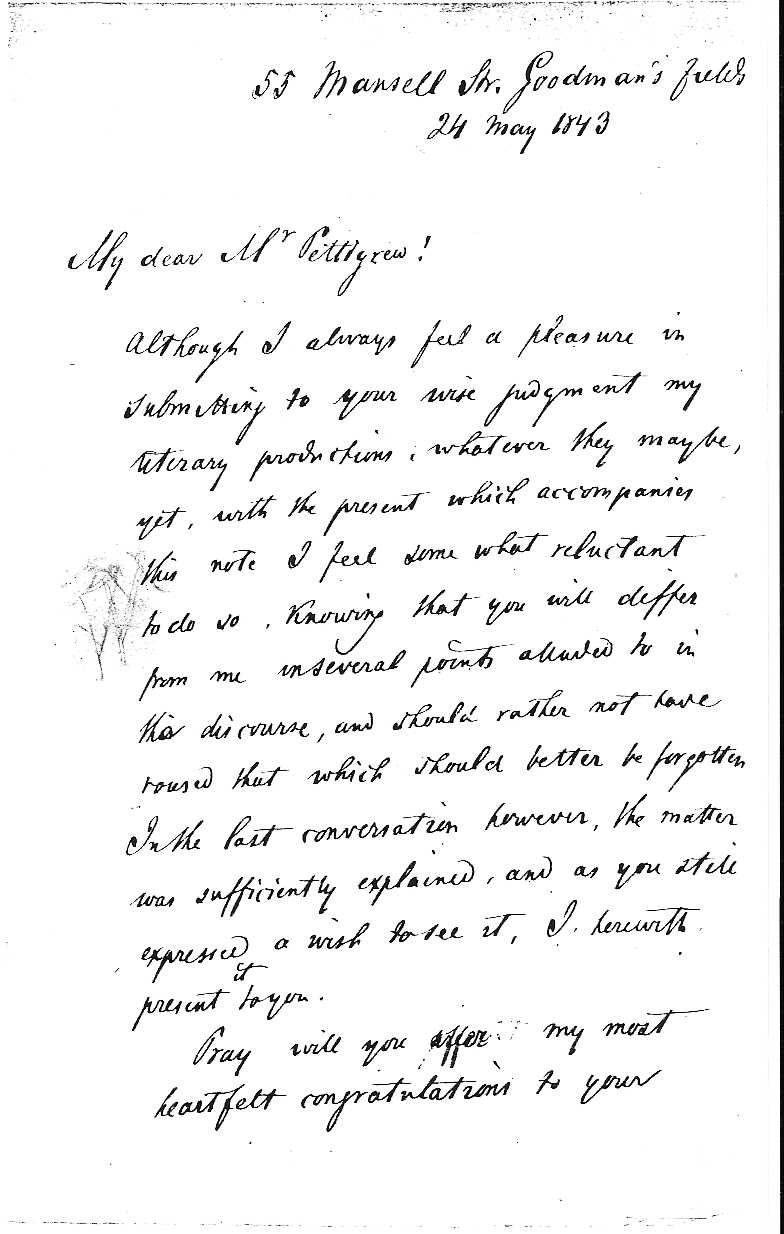 55 Mansell Str. Goodman's fields
24 May 1843
My dear Mr Pettigrew!
Although I always feel a pleasure in
submitting to your wise judgment my
literary productions, whatever they maybe,
yet, with the present which accompanies
this note I feel some what reluctant
to do so, Knowing that you will differ
from me in several points alluded to in
this discourse, and should rather not have
roused that which should better be forgotten
In the last conversation however, the matter
was sufficiently explained, and as you still
expressed a wish to see it, I herewith
present it to you.
Pray will you offer my most
heartfelt congratulations to your